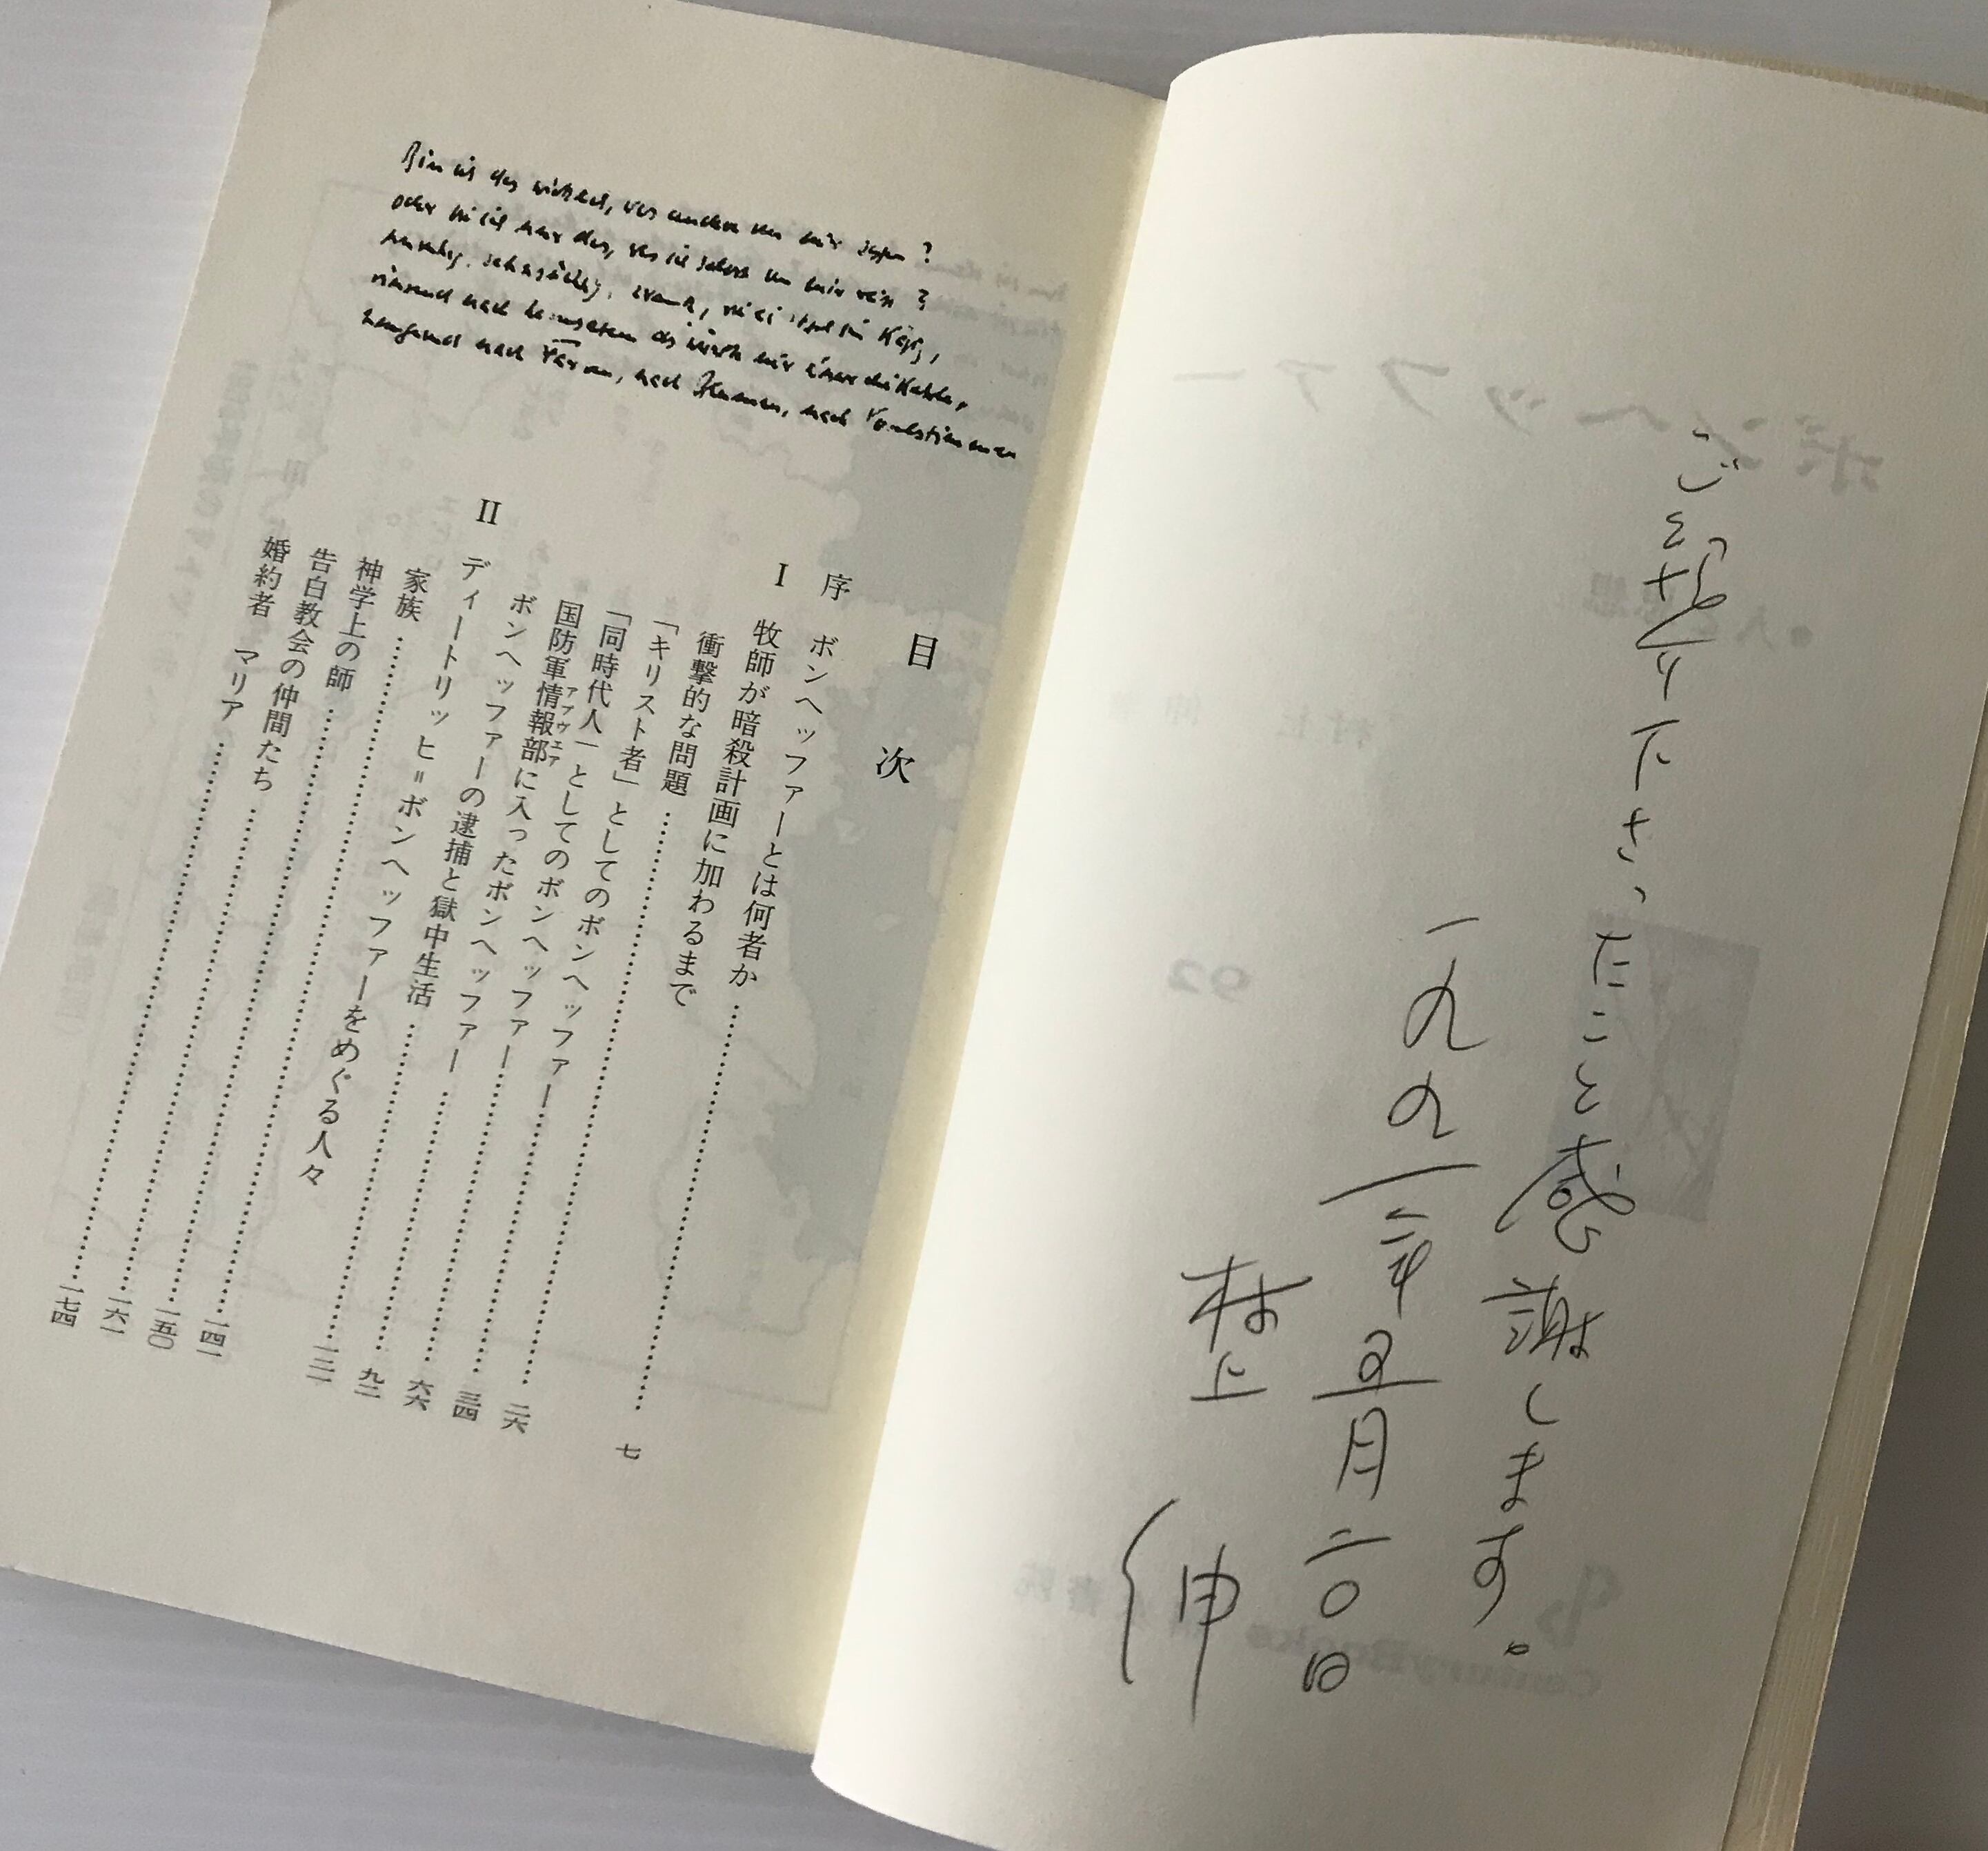 下さったこと感謝します。
一九九一年五月二〇日
村上 伸
Bin ich das wirklich, was andere von mir sagen?
oder bin ich nur das, was ich selbst von mir weiss?
unruhig, sehnsüchtig, krank, wie ein Vogel im Käfig,
ringend nach Lebensatem als würgte mir einer die Kehle,
hungernd nach Farben, nach Blumen, nach Vogelstimmen
目次
序 ボンヘッファーとは何者か……七
I 牧師が暗殺計画に加わるまで
衝撃的な問題……二六
「キリスト者」としてのボンヘッファー……三四
「同時代人」としてのボンヘッファー……六六
国防軍情報部アプヴェアに入ったボンヘッファー……九二
ボンヘッファーの逮捕と獄中生活……一三一
II ディートリッヒ=ボンヘッファーをめぐる人々
家族……一四一
神学上の師……一五〇
告白教会の仲間たち……一六一
婚約者 マリア……一七四